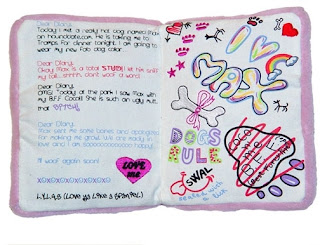 Dear Diary,
Today I met a really hot dog named Max
on houndDate.com. He is taking me to
Tramps for dinner tonight. I am going to
wear my new fab dog collar.
Dear Diary,
Okay Max is a total STUD!! I let him sniff
my tail...shhhh, don't woof a word.
Dear Diary,
OMG! Today at the park I saw Max with
my B.F.F Coco!! She is such an ugly mutt,
that BITCH!
Dear Diary,
Max sent me some bones and apologized
for making me growl. We are madly in
love and I am soooooooooooo happy!
I'll woof again soon!
xoxoxoxoxoxoxoxo
L.Y.L.A.S (Love ya Like a Spaniel)
LOVE
me
I
MAX
DOGS
RULE
SWAL
sealed with
a lick
COCO
and